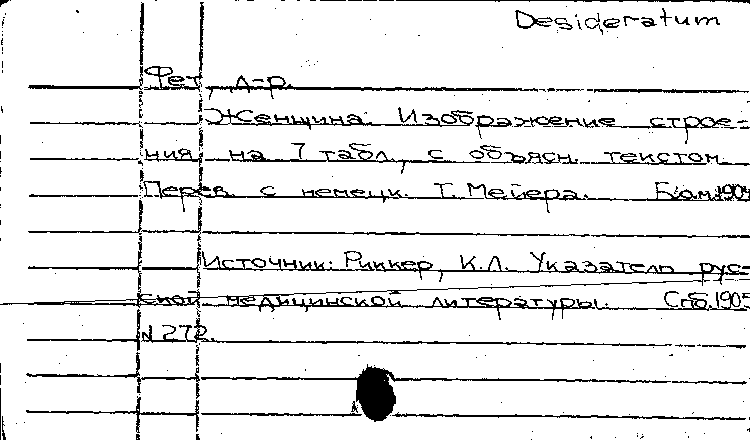 Desideratum
Фет, д-р.
Женщина. Изображение строе-
ния на 7 табл., с объясн. текстом.
Перев. с немецк. Т. Мейера. Б.м.
Источник: Риккер, К.Л. Указатель рус-
ской медицинской литературы. Спб. 1905
N 272.